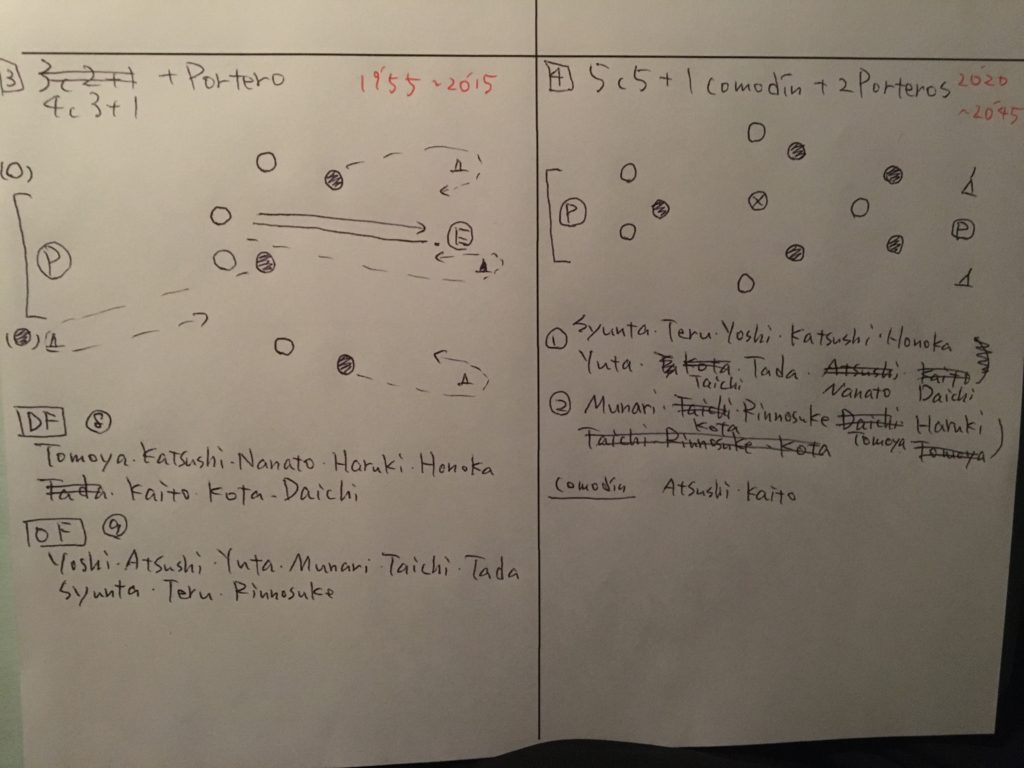 3 3c2+1 + Portero 19'55 ~20'15
4c3+1
(O)
P
E
DF 8
Tomoya · Katsushi · Nanato · Haruki · Honoka
Tada · Kaito · Kota - Daichi
OF 9
Yoshi · Atsushi · Yuta · Munari · Taichi · Tada
Syunta · Teru · Rinnosuke
4 5c5 + 1 comodín + 2 Porteros 20'20
~20'45
P
P
① Syunta · Teru · Yoshi · Katsushi · Honoka
Yuta · Kota · Tada · Atsushi · Kaito
Taichi Nanato Daichi
② Munari · Taichi · Rinnosuke Daichi Haruki
Kota
Taichi Rinnosuke · Kota Tomoya Tomoya
Comodin Atsushi · Kaito